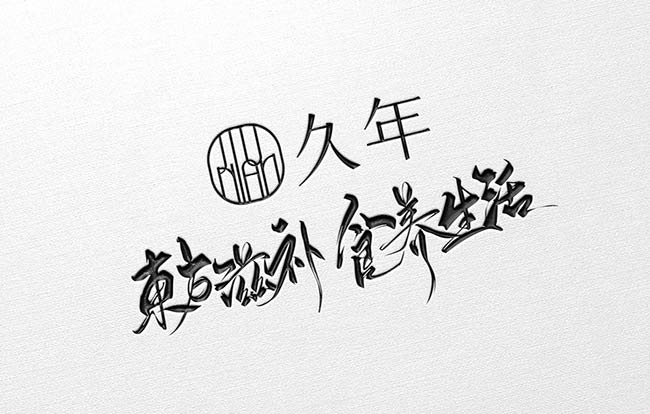 久年
東方滋补 养生活